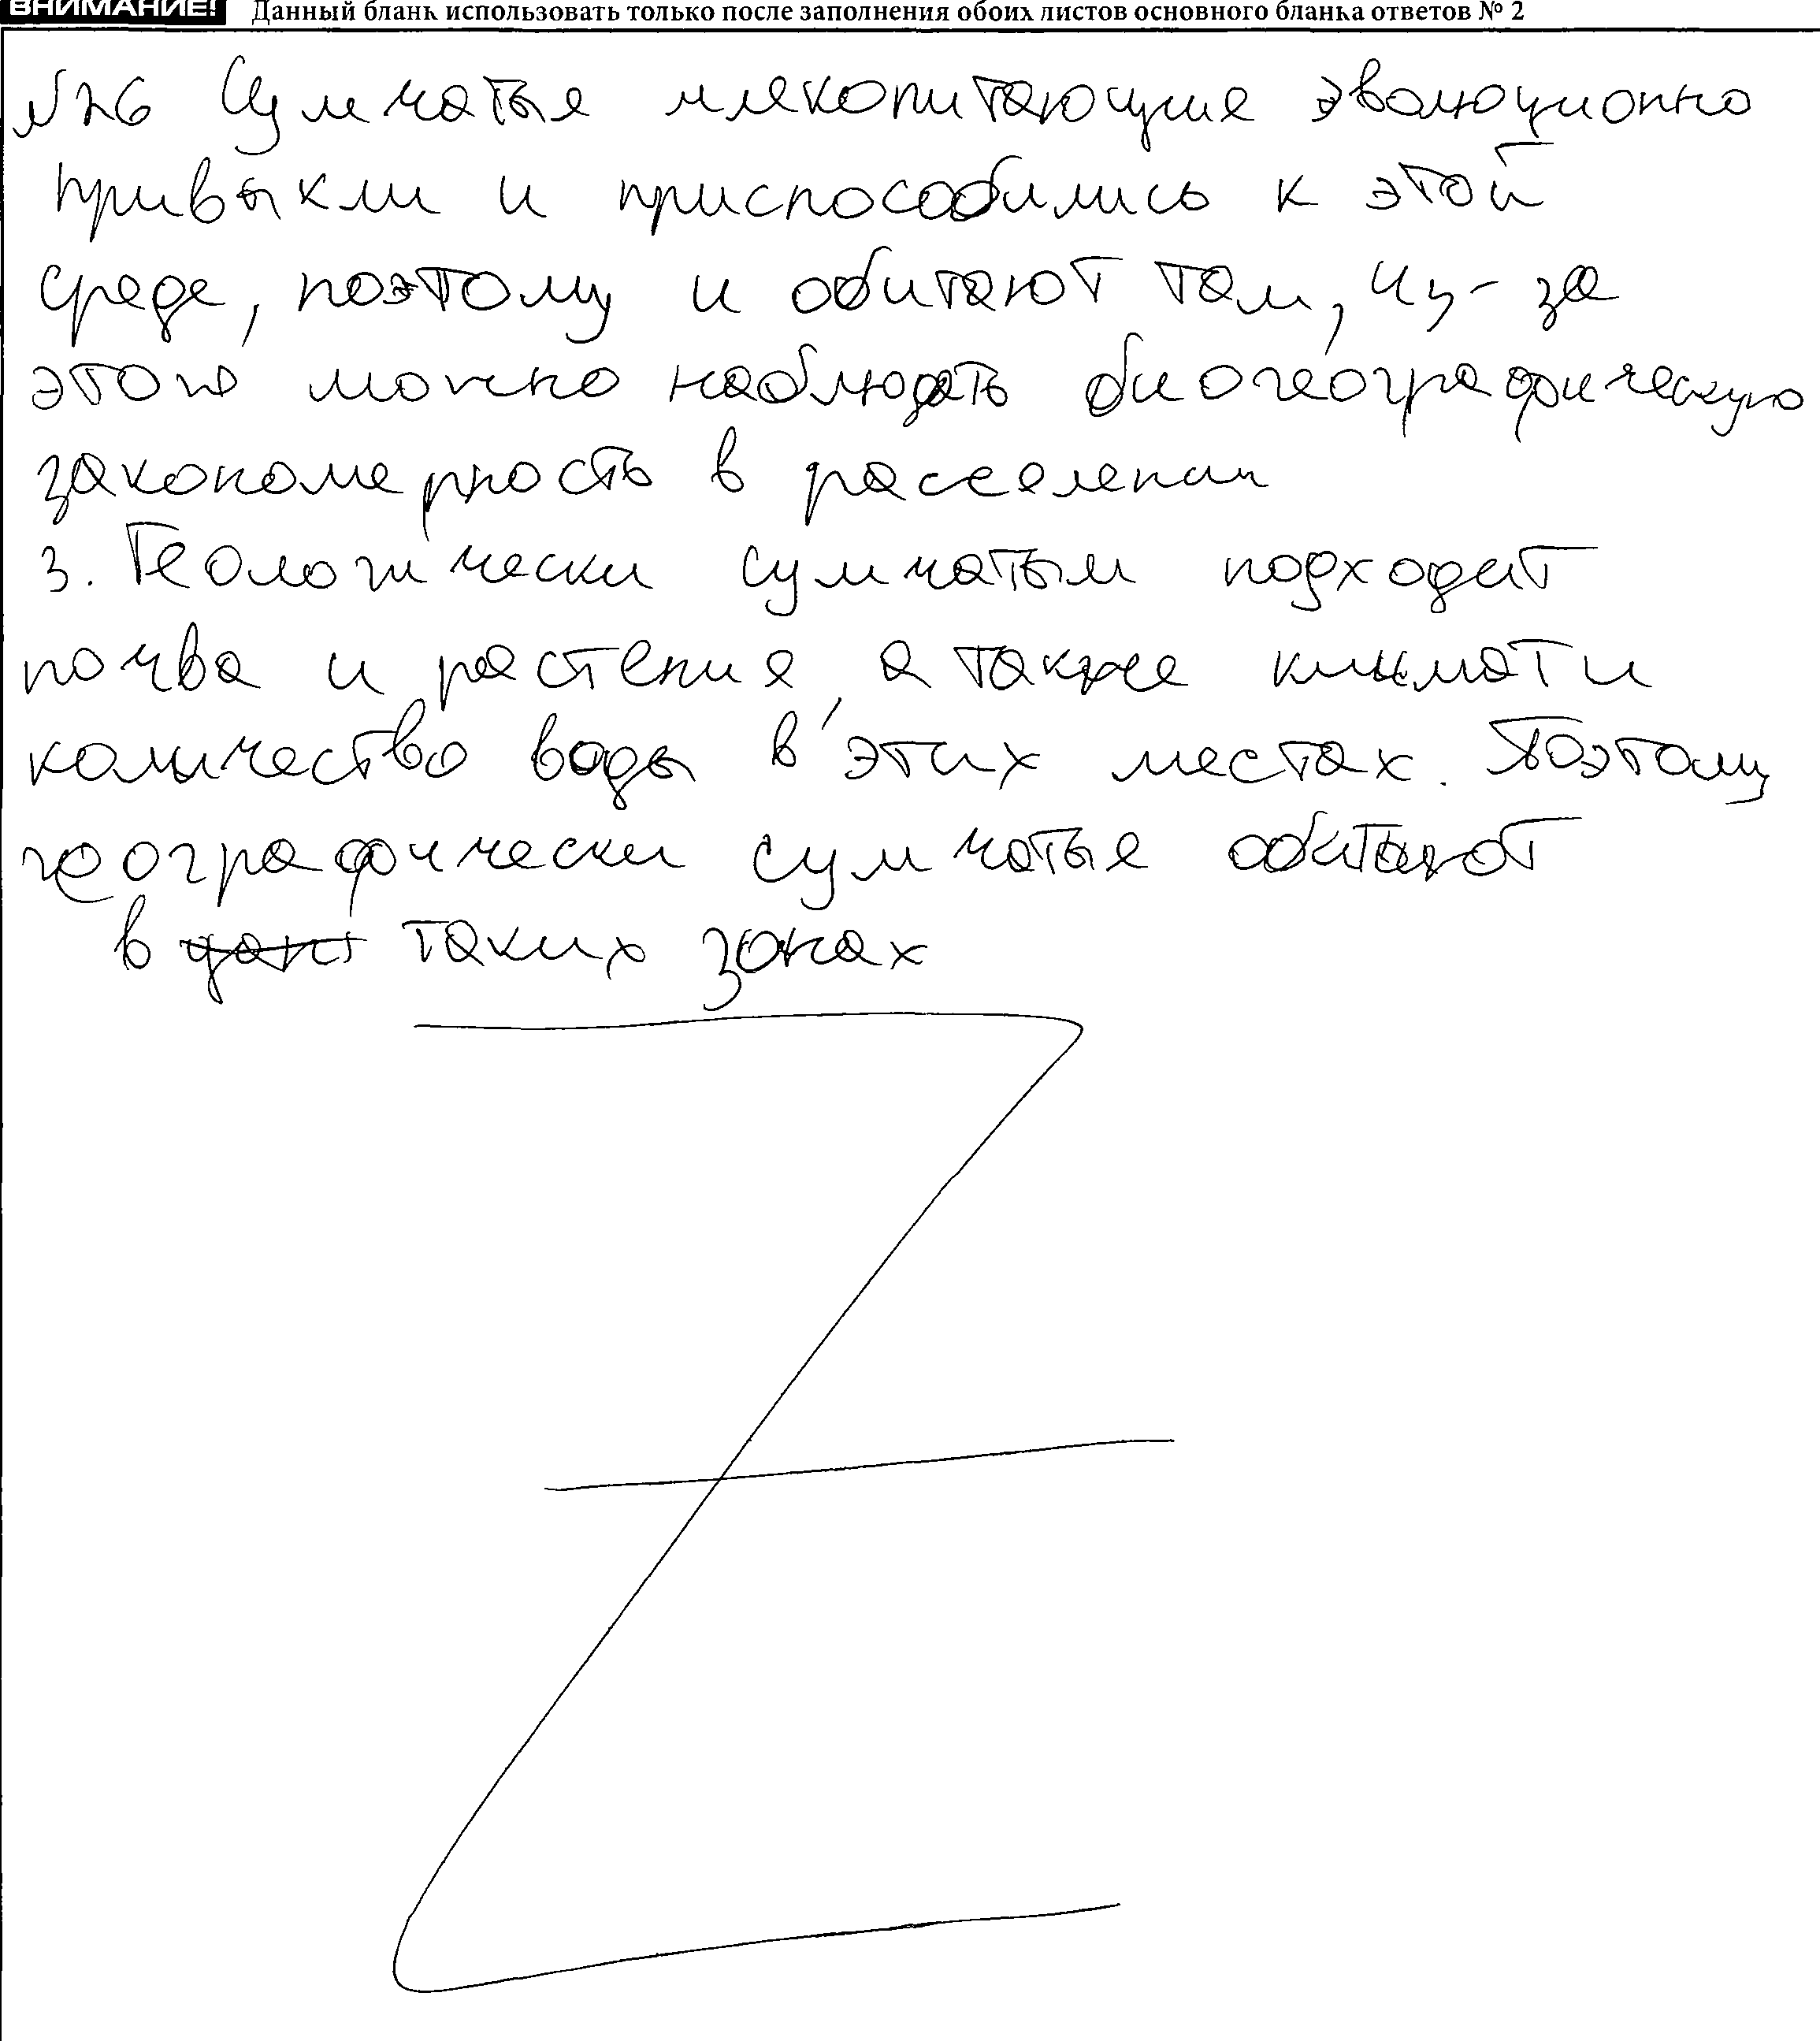 ВНИМАНИЕ! Данный бланк использовать только после заполнения обоих листов основного бланка ответов № 2
№26 Сумчатые млекопитающие эволюционно
привыкли и приспособились к этой
среде, поэтому и обитают там, из-за
этого можно наблюдать биогеографическую
закономерность в расселении
3. Геологически сумчатым подходит
почва и растения, а также климат и
количество воды в этих местах. Поэтому
географически сумчатые обитают
в таких зонах